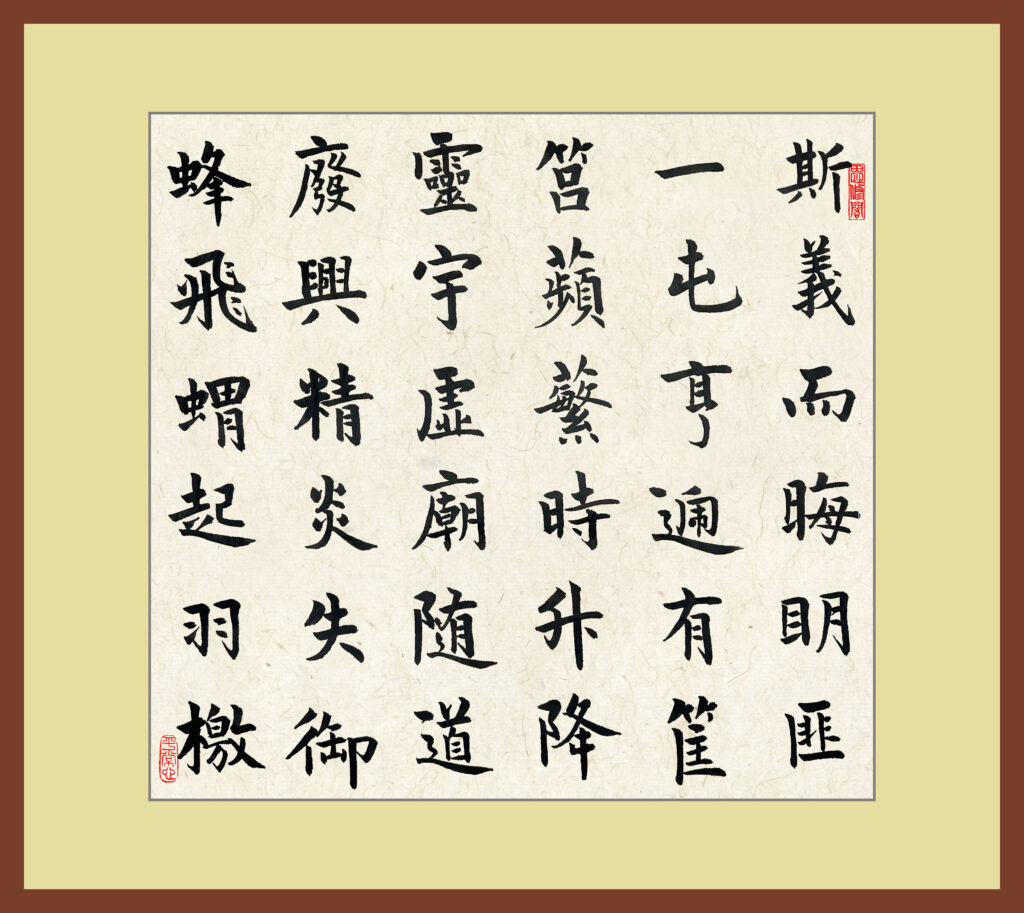 斯義而晦明匪
一屯亨遞有筐
筥蘋蘩時升降
靈宇虛廟随道
廢興精炎失御
蜂飛蝟起羽檄
思脩閣
平常心